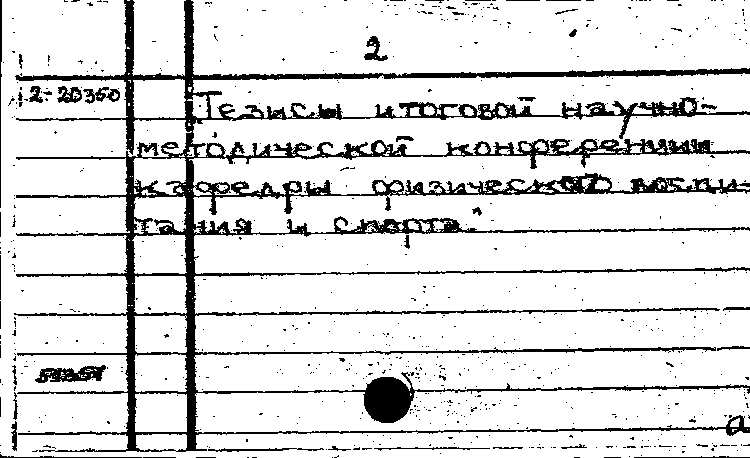 2
2-20360
„Тезисы итоговой научно-
методической конференции
кафедры физического воспи-
тания и спорта."
а